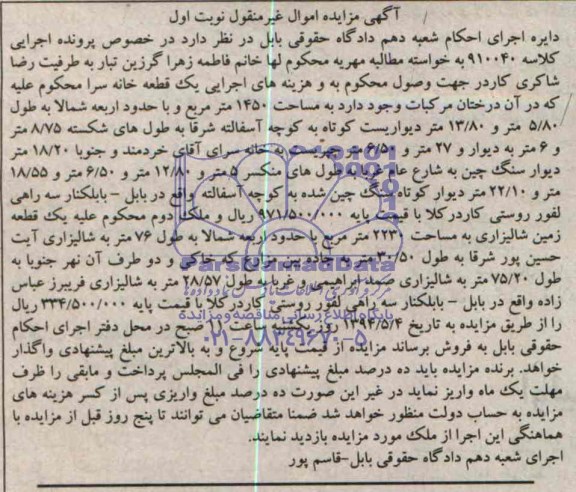 آگهی مزایده اموال غیرمنقول نوبت اول
دایره اجرای احکام شعبه دهم دادگاه حقوقی بابل در نظر دارد در خصوص پرونده اجرایی
کلاسه ۹۱۰۰۴۰ به خواسته مطالبه مهریه محکوم لها خانم فاطمه زهرا گرزین تبار به طرفیت رضا
شاکری کاردر جهت وصول محکوم به و هزینه های اجرایی یک قطعه خانه سرا محکوم علیه
که در آن درختان مرکبات وجود دارد به مساحت ۱۴۵۰ متر مربع و با حدود اربعه شمالا به طول
۵/۸۰ متر و ۱۳/۸۰ متر دیواریست کوتاه به کوچه آسفالته شرقا به طول های شکسته ۸/۷۵ متر
و ۶ متر به دیوار و ۲۷ متر و ۶/۵۰ متر به خانه سرای آقای خردمند و جنوبا ۱۸/۲۰ متر
دیوار سنگ چین به شارع عام غربا به طول های منکسر ۵ متر و ۱۲/۸۰ متر و ۶/۵۰ متر و ۱۸/۵۵
متر و ۲۲/۱۰ متر دیوار کوتاه سنگ چین شده به کوچه آسفالته واقع در بابل – بابلکنار سه راهی
لفور روستی کاردرکلا با قیمت پایه ۹۷۱/۵۰۰/۰۰۰ ریال و ملک دوم محکوم علیه یک قطعه
زمین شالیزاری به مساحت ۲۲۳۰ متر مربع با حدود اربعه شمالا به طول ۷۶ متر به شالیزاری آیت
حسین پور شرقا به طول ۳۰/۵۰ متر به جاده بین مزارع که خاکی و دو طرف آن نهر جنوبا به
طول ۷۵/۲۰ متر به شالیزاری صمد ابراهیمی و غربا به طول ۲۸/۵۷ متر به شالیزاری فریبرز عباس
زاده واقع در بابل – بابلکنار سه راهی لفور روستی کاردرکلا با قیمت پایه ۳۳۴/۵۰۰/۰۰۰ ریال
را از طریق مزایده به تاریخ ۱۳۹۴/۵/۴ روز یکشنبه ساعت ۱۱ صبح در محل دفتر اجرای احکام
حقوقی بابل به فروش برساند مزایده از قیمت پایه شروع و به بالاترین مبلغ پیشنهادی واگذار
خواهد. برنده مزایده باید ده درصد مبلغ پیشنهادی را فی المجلس پرداخت و مابقی را ظرف
مهلت یک ماه واریز نماید در غیر این صورت ده درصد مبلغ واریزی پس از کسر هزینه های
مزایده به حساب دولت منظور خواهد شد ضمنا متقاضیان می توانند تا پنج روز قبل از مزایده با
هماهنگی این اجرا از ملک مورد مزایده بازدید نمایند.
اجرای شعبه دهم دادگاه حقوقی بابل-قاسم پور
ParsNamadData
پایگاه اطلاع رسانی مناقصه و مزایده
۰۲۱-۸۸۳۴۹۶۷۰-۵